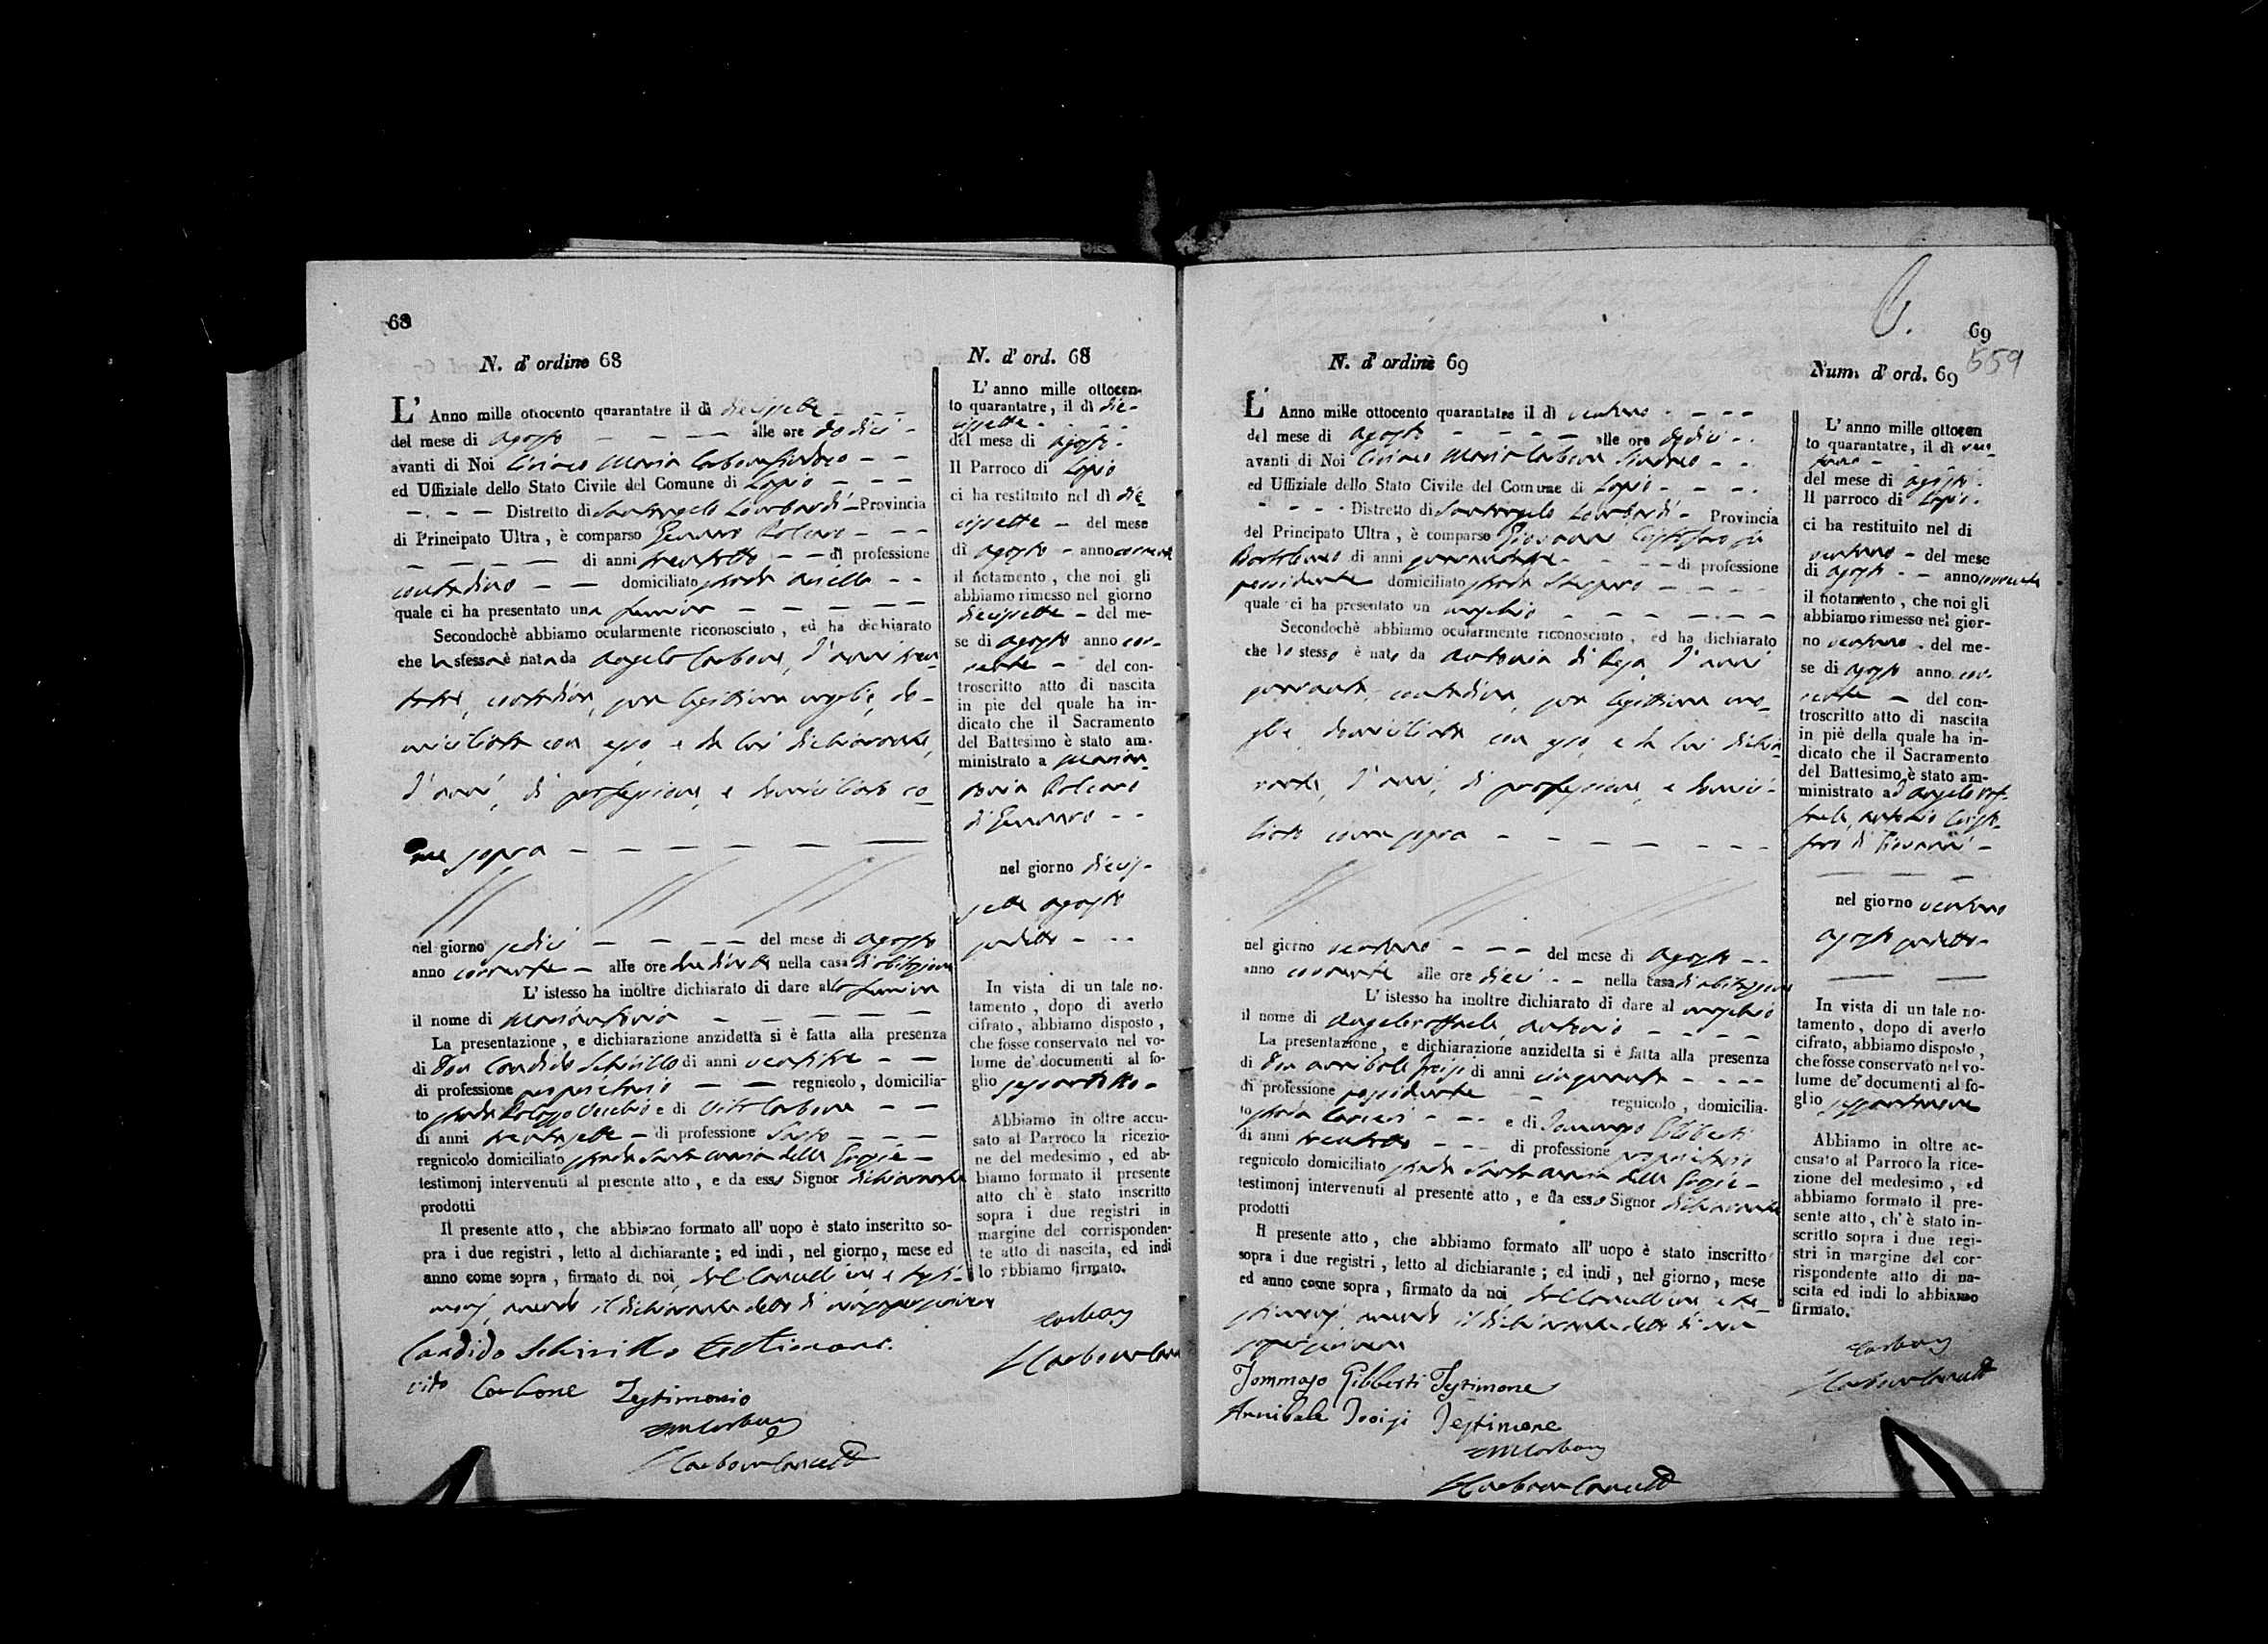 68
N. d' ordine 68
L' Anno mille ottocento quarantatre il dì diecissette
del mese di agosto alle ore dodici
avanti di Noi Ciriaco Maria Carbone Sindaco
ed Uffiziale dello Stato Civile del Comune di Lapio
Distretto di Santangelo Lombardi Provincia
di Principato Ultra, è comparso Gennaro
di anni trentotto di professione
contadino domiciliato strada
quale ci ha presentato una femina
Secondochè abbiamo ocularmente riconosciuto, ed ha dichiarato
che la stessa è nata da Angela Carbone, d'anni tren-
tatre, contadina, sua legittima moglie, do-
miciliata con esso e da lui dichiarante,
d'anni, di professione, e domiciliato co-
me sopra
nel giorno sedici del mese di agosto
anno corrente alle ore nella casa di abitazione
L' istesso ha inoltre dichiarato di dare alla femina
il nome di Mariantonia
La presentazione, e dichiarazione anzidetta si è fatta alla presenza
di Don Candido Schirillo di anni ventitre
di professione proprietario regnicolo, domicilia-
to strada Vecchio e di Vito Carbone
di anni trentasette di professione Sarto
regnicolo domiciliato strada Santa Maria della
testimonj intervenuti al presente atto, e da esso Signor dichiarante
prodotti
Il presente atto, che abbiamo formato all' uopo è stato inscritto so-
pra i due registri, letto al dichiarante; ed indi, nel giorno, mese ed
anno come sopra, firmato da noi, dal Cancelliere e testi-
monj, avendo il dichiarante detto di non saper scrivere
Candido Schirillo testimone
Vito Carbone Testimonio
N. d' ord. 68
L' anno mille ottocen-
to quarantatre, il dì die-
cissette
del mese di agosto
Il Parroco di Lapio
ci ha restituito nel dì die-
cissette del mese
di agosto anno corrente
il notamento, che noi gli
abbiamo rimesso nel giorno
diecissette del me-
se di agosto anno cor-
rente del con-
troscritto atto di nascita
in piè del quale ha in-
dicato che il Sacramento
del Battesimo è stato am-
ministrato a Marian-
tonia
di Gennaro
nel giorno diecis-
sette agosto
suddetto
In vista di un tale no-
tamento, dopo di averlo
cifrato, abbiamo disposto,
che fosse conservato nel vo-
lume de' documenti al fo-
glio sessantotto
Abbiamo in oltre accu-
sato al Parroco la ricezio-
ne del medesimo, ed ab-
biamo formato il presente
atto ch' è stato inscritto
sopra i due registri in
margine del corrisponden-
te atto di nascita, ed indi
lo abbiamo firmato.
69
559
N. d' ordine 69
L' Anno mille ottocento quarantatre il dì ventuno
del mese di agosto alle ore dodici
avanti di Noi Ciriaco Maria Carbone Sindaco
ed Uffiziale dello Stato Civile del Comune di Lapio
Distretto di Santangelo Lombardi Provincia
del Principato Ultra, è comparso Giovanni
di anni di professione
possidente domiciliato strada
quale ci ha presentato un maschio
Secondochè abbiamo ocularmente riconosciuto, ed ha dichiarato
che lo stesso è nato da Antonia di d'anni
quaranta, contadina, sua legittima mo-
glie, domiciliata con esso, e da lui dichia-
rante, d'anni, di professione, e domici-
liato come sopra
nel giorno ventuno del mese di agosto
anno corrente alle ore dieci nella casa di abitazione
L' istesso ha inoltre dichiarato di dare al maschio
il nome di Angeloraffaele, Antonio
La presentazione, e dichiarazione anzidetta si è fatta alla presenza
di Don Annibale di anni cinquanta
di professione possidente regnicolo, domicilia-
to strada e di Tommaso Giliberti
di anni trentotto di professione proprietario
regnicolo domiciliato strada Santa Maria della
testimonj intervenuti al presente atto, e da esso Signor dichiarante
prodotti
Il presente atto, che abbiamo formato all' uopo è stato inscritto
sopra i due registri, letto al dichiarante; ed indi, nel giorno, mese
ed anno come sopra, firmato da noi, dal Cancelliere e te-
stimonj, avendo il dichiarante detto di non
saper scrivere
Tommaso Giliberti Testimone
Annibale Testimone
Num. d' ord. 69
L' anno mille ottocen
to quarantatre, il dì ven-
tuno
del mese di agosto
Il parroco di Lapio
ci ha restituito nel di
ventuno del mese
di agosto anno corrente
il notamento, che noi gli
abbiamo rimesso nel gior-
no ventuno del me-
se di agosto anno cor-
rente del con-
troscritto atto di nascita
in piè della quale ha in-
dicato che il Sacramento
del Battesimo è stato am-
ministrato ad Angeloraf-
faele, Antonio
di Giovanni
nel giorno ventuno
agosto suddetto
In vista di un tale no-
tamento, dopo di averlo
cifrato, abbiamo disposto,
che fosse conservato nel vo-
lume de' documenti al fo-
glio sessantanove
Abbiamo in oltre ac-
cusato al Parroco la rice-
zione del medesimo, ed
abbiamo formato il pre-
sente atto, ch' è stato in-
scritto sopra i due regi-
stri in margine del cor-
rispondente atto di na-
scita ed indi lo abbiamo
firmato.